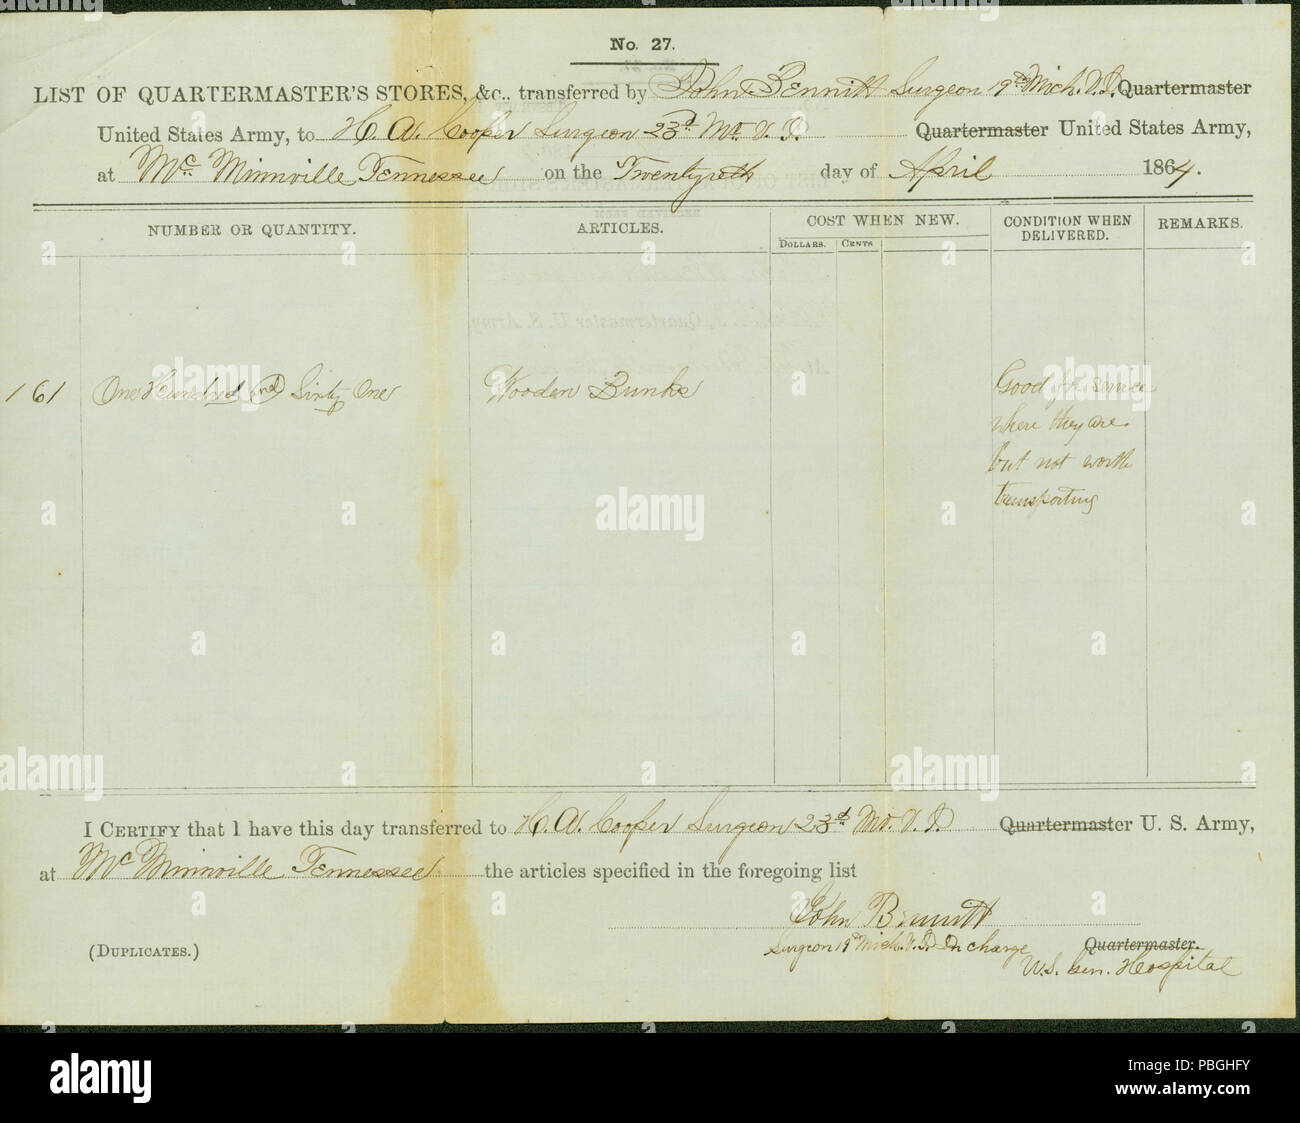 No. 27.
LIST OF QUARTERMASTER'S STORES, &c., transferred by John Bennitt Surgeon 19th Mich. V. I. Quartermaster
United States Army, to H. A. Cooper Surgeon 23d Mo. V. I. Quartermaster United States Army,
at Mc Minnville Tennessee on the Twentyeth day of April 1864.
NUMBER OR QUANTITY. ARTICLES. COST WHEN NEW. CONDITION WHEN DELIVERED. REMARKS.
DOLLARS. CENTS
161 One Hundred and Sixty One Wooden Bunks Good for service
where they are
but not worth
transporting
I CERTIFY that I have this day transferred to H. A. Cooper Surgeon 23d Mo. V. I. Quartermaster U. S. Army,
at Mc Minnville Tennessee the articles specified in the foregoing list
John Bennitt
Surgeon 19th Mich. V. I. In charge Quartermaster.
U.S. Gen. Hospital
(DUPLICATES.)
alamy
alamy
Image ID: PBGHFY
www.alamy.com